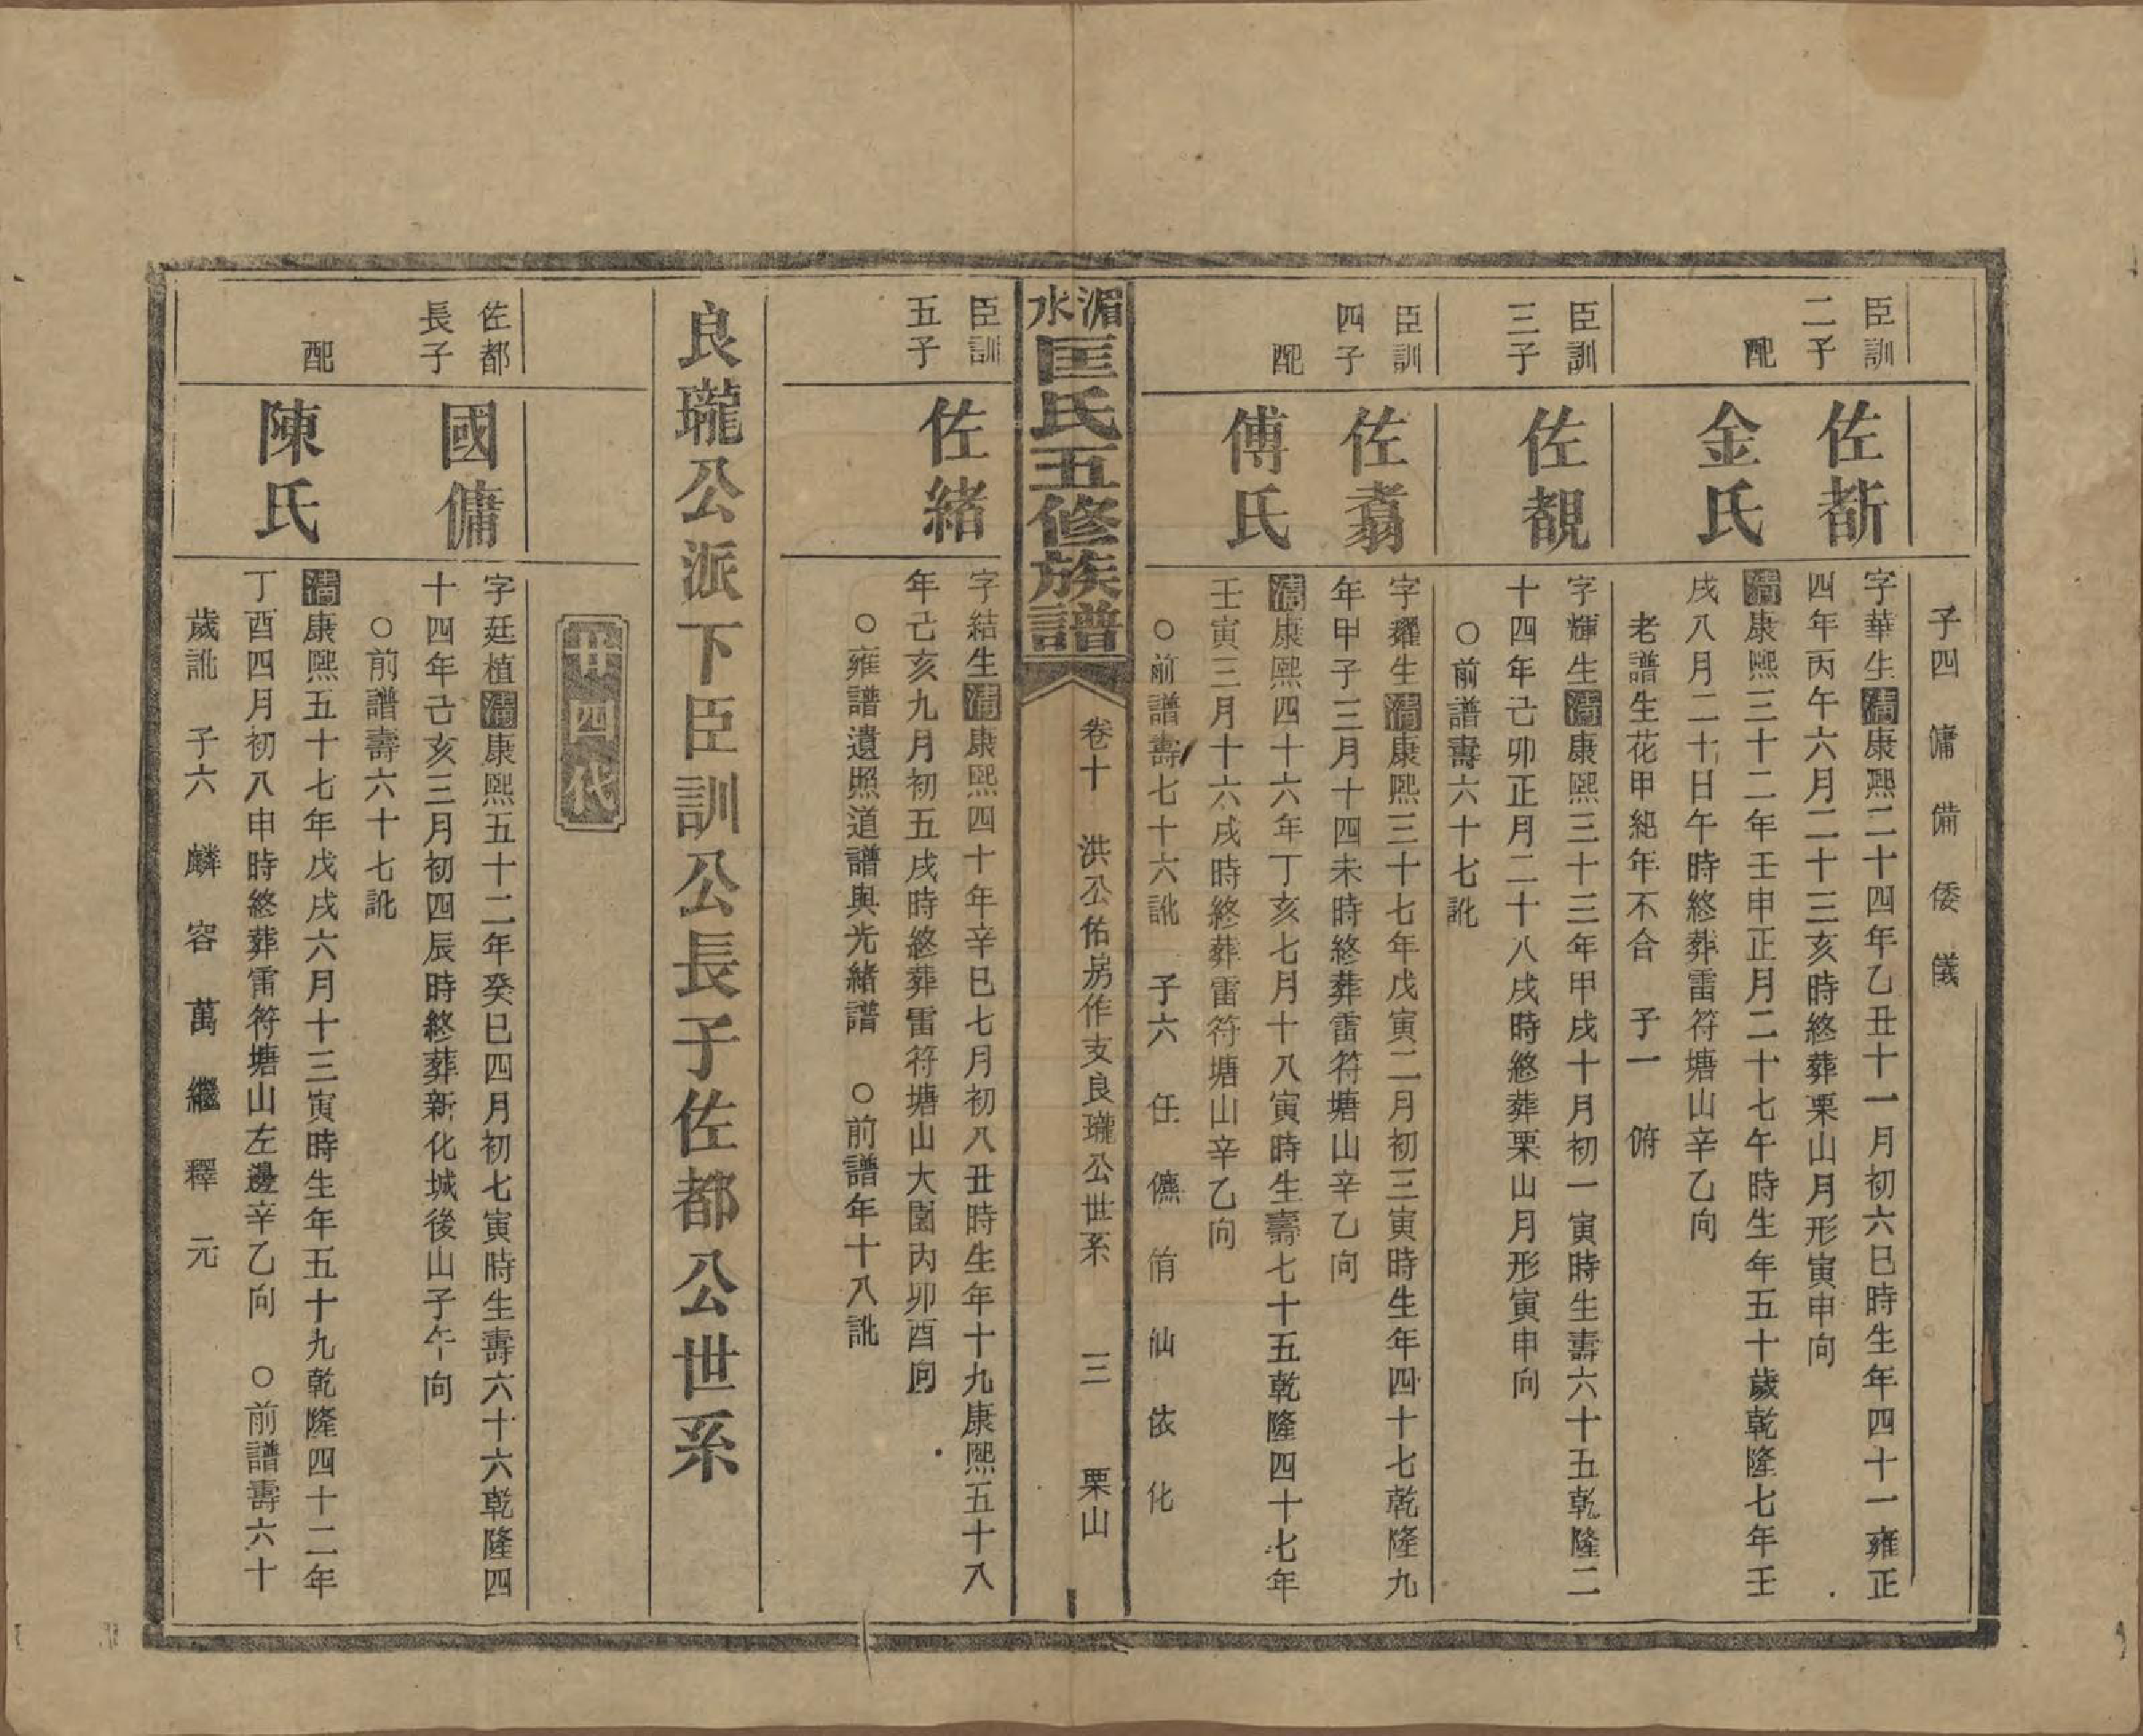 子四 傭 備 倭 儀
臣訓
二子
佐斮
字華生清康熙二十四年乙丑十一月初六巳時生年四十一雍正
四年丙午六月二十三亥時終葬栗山月形寅申向
配
金氏
清康熙三十二年壬申正月二十七午時生年五十歲乾隆七年壬
戌八月二十日午時終葬雷符塘山辛乙向
老譜生花甲紀年不合 子一 俯
臣訓
三子
佐覩
字輝生清康熙三十三年甲戌十月初一寅時生壽六十五乾隆二
十四年己卯正月二十八戌時終葬栗山月形寅申向
○前譜壽六十七訛
臣訓
四子
佐翥
字耀生清康熙三十七年戊寅二月初三寅時生年四十七乾隆九
年甲子三月十四未時終葬雷符塘山辛乙向
配
傅氏
清康熙四十六年丁亥七月十八寅時生壽七十五乾隆四十七年
壬寅三月十六戌時終葬雷符塘山辛乙向
○前譜壽七十六訛 子六 任 儦 偤 仙 依 化
湄水匡氏五修族譜
卷十 洪公佑房作支良瓏公世系 三 栗山
臣訓
五子
佐緒
字結生清康熙四十年辛巳七月初八丑時生年十九康熙五十八
年己亥九月初五戌時終葬雷符塘山大園內卯酉向
○雍譜遺照道譜與光緒譜 ○前譜年十八訛
良瓏公派下臣訓公長子佐都公世系
廿四代
佐都
長子
國傭
字廷植清康熙五十二年癸巳四月初七寅時生壽六十六乾隆四
十四年己亥三月初四辰時終葬新化城後山子午向
○前譜壽六十七訛
配
陳氏
清康熙五十七年戊戌六月十三寅時生年五十九乾隆四十二年
丁酉四月初八申時終葬雷符塘山左邊辛乙向 ○前譜壽六十
歲訛 子六 麟 容 萬 繼 釋 元